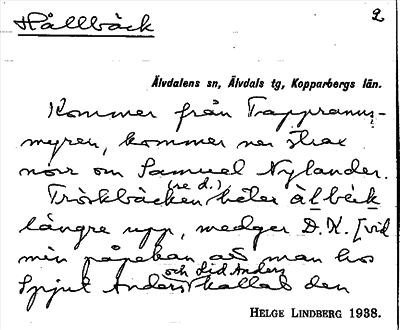 Hållbäck
2
Älvdalens sn, Älvdals tg, Kopparbergs län.
Kommer från Tappranus-
myren, kommer ner strax
norr om Samuel Nylander.
(se d.)
Tröskbäcken heter àlbèk
längre upp, medger D.K. [vid
min påpekan att man hos
och Lid Anders
Spjut Anders kallat den
HELGE LINDBERG 1938.